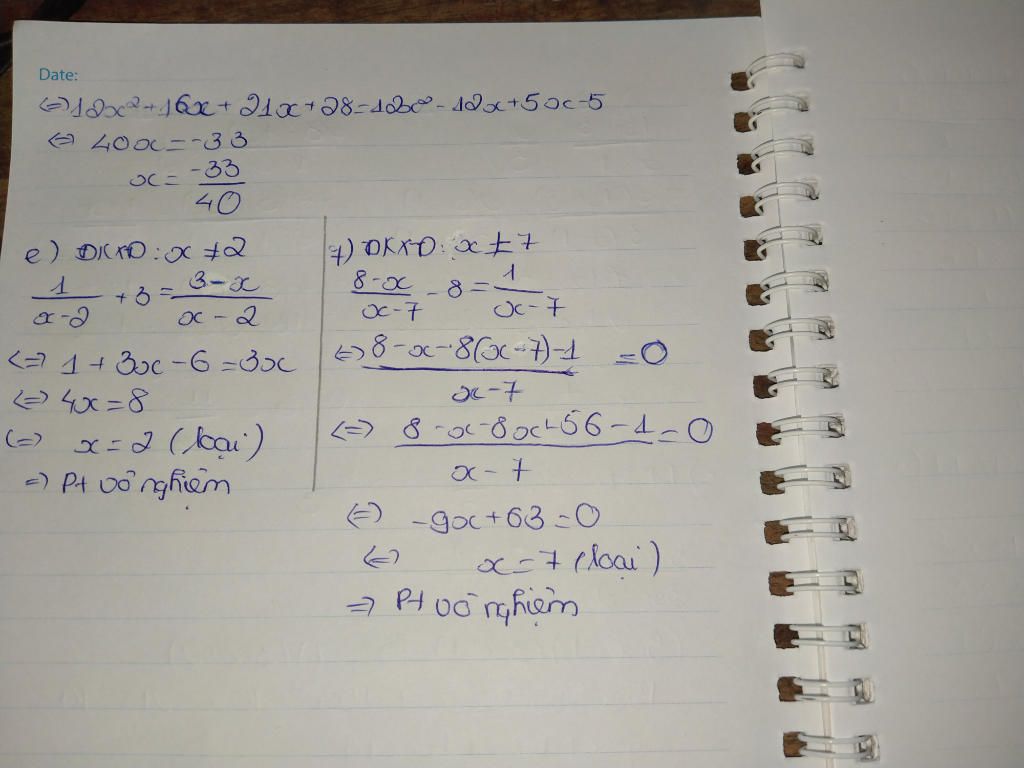 Date:
<=> 12x² + 16x + 21x + 28 = 12x² - 12x + 5x - 5
<=> 40x = -33
x = -33/40
e) ĐKXĐ: x ≠ 2
1/(x-2) + 3 = (3-x)/(x-2)
<=> 1 + 3x - 6 = 3x
<=> 4x = 8
<=> x = 2 (loại)
=> Pt vô nghiệm
f) ĐKXĐ: x ≠ 7
(8-x)/(x-7) - 8 = 1/(x-7)
<=> (8-x-8(x-7)-1)/(x-7) = 0
<=> (8-x-8x+56-1)/(x-7) = 0
<=> -9x + 63 = 0
<=> x = 7 (loại)
=> Pt vô nghiệm